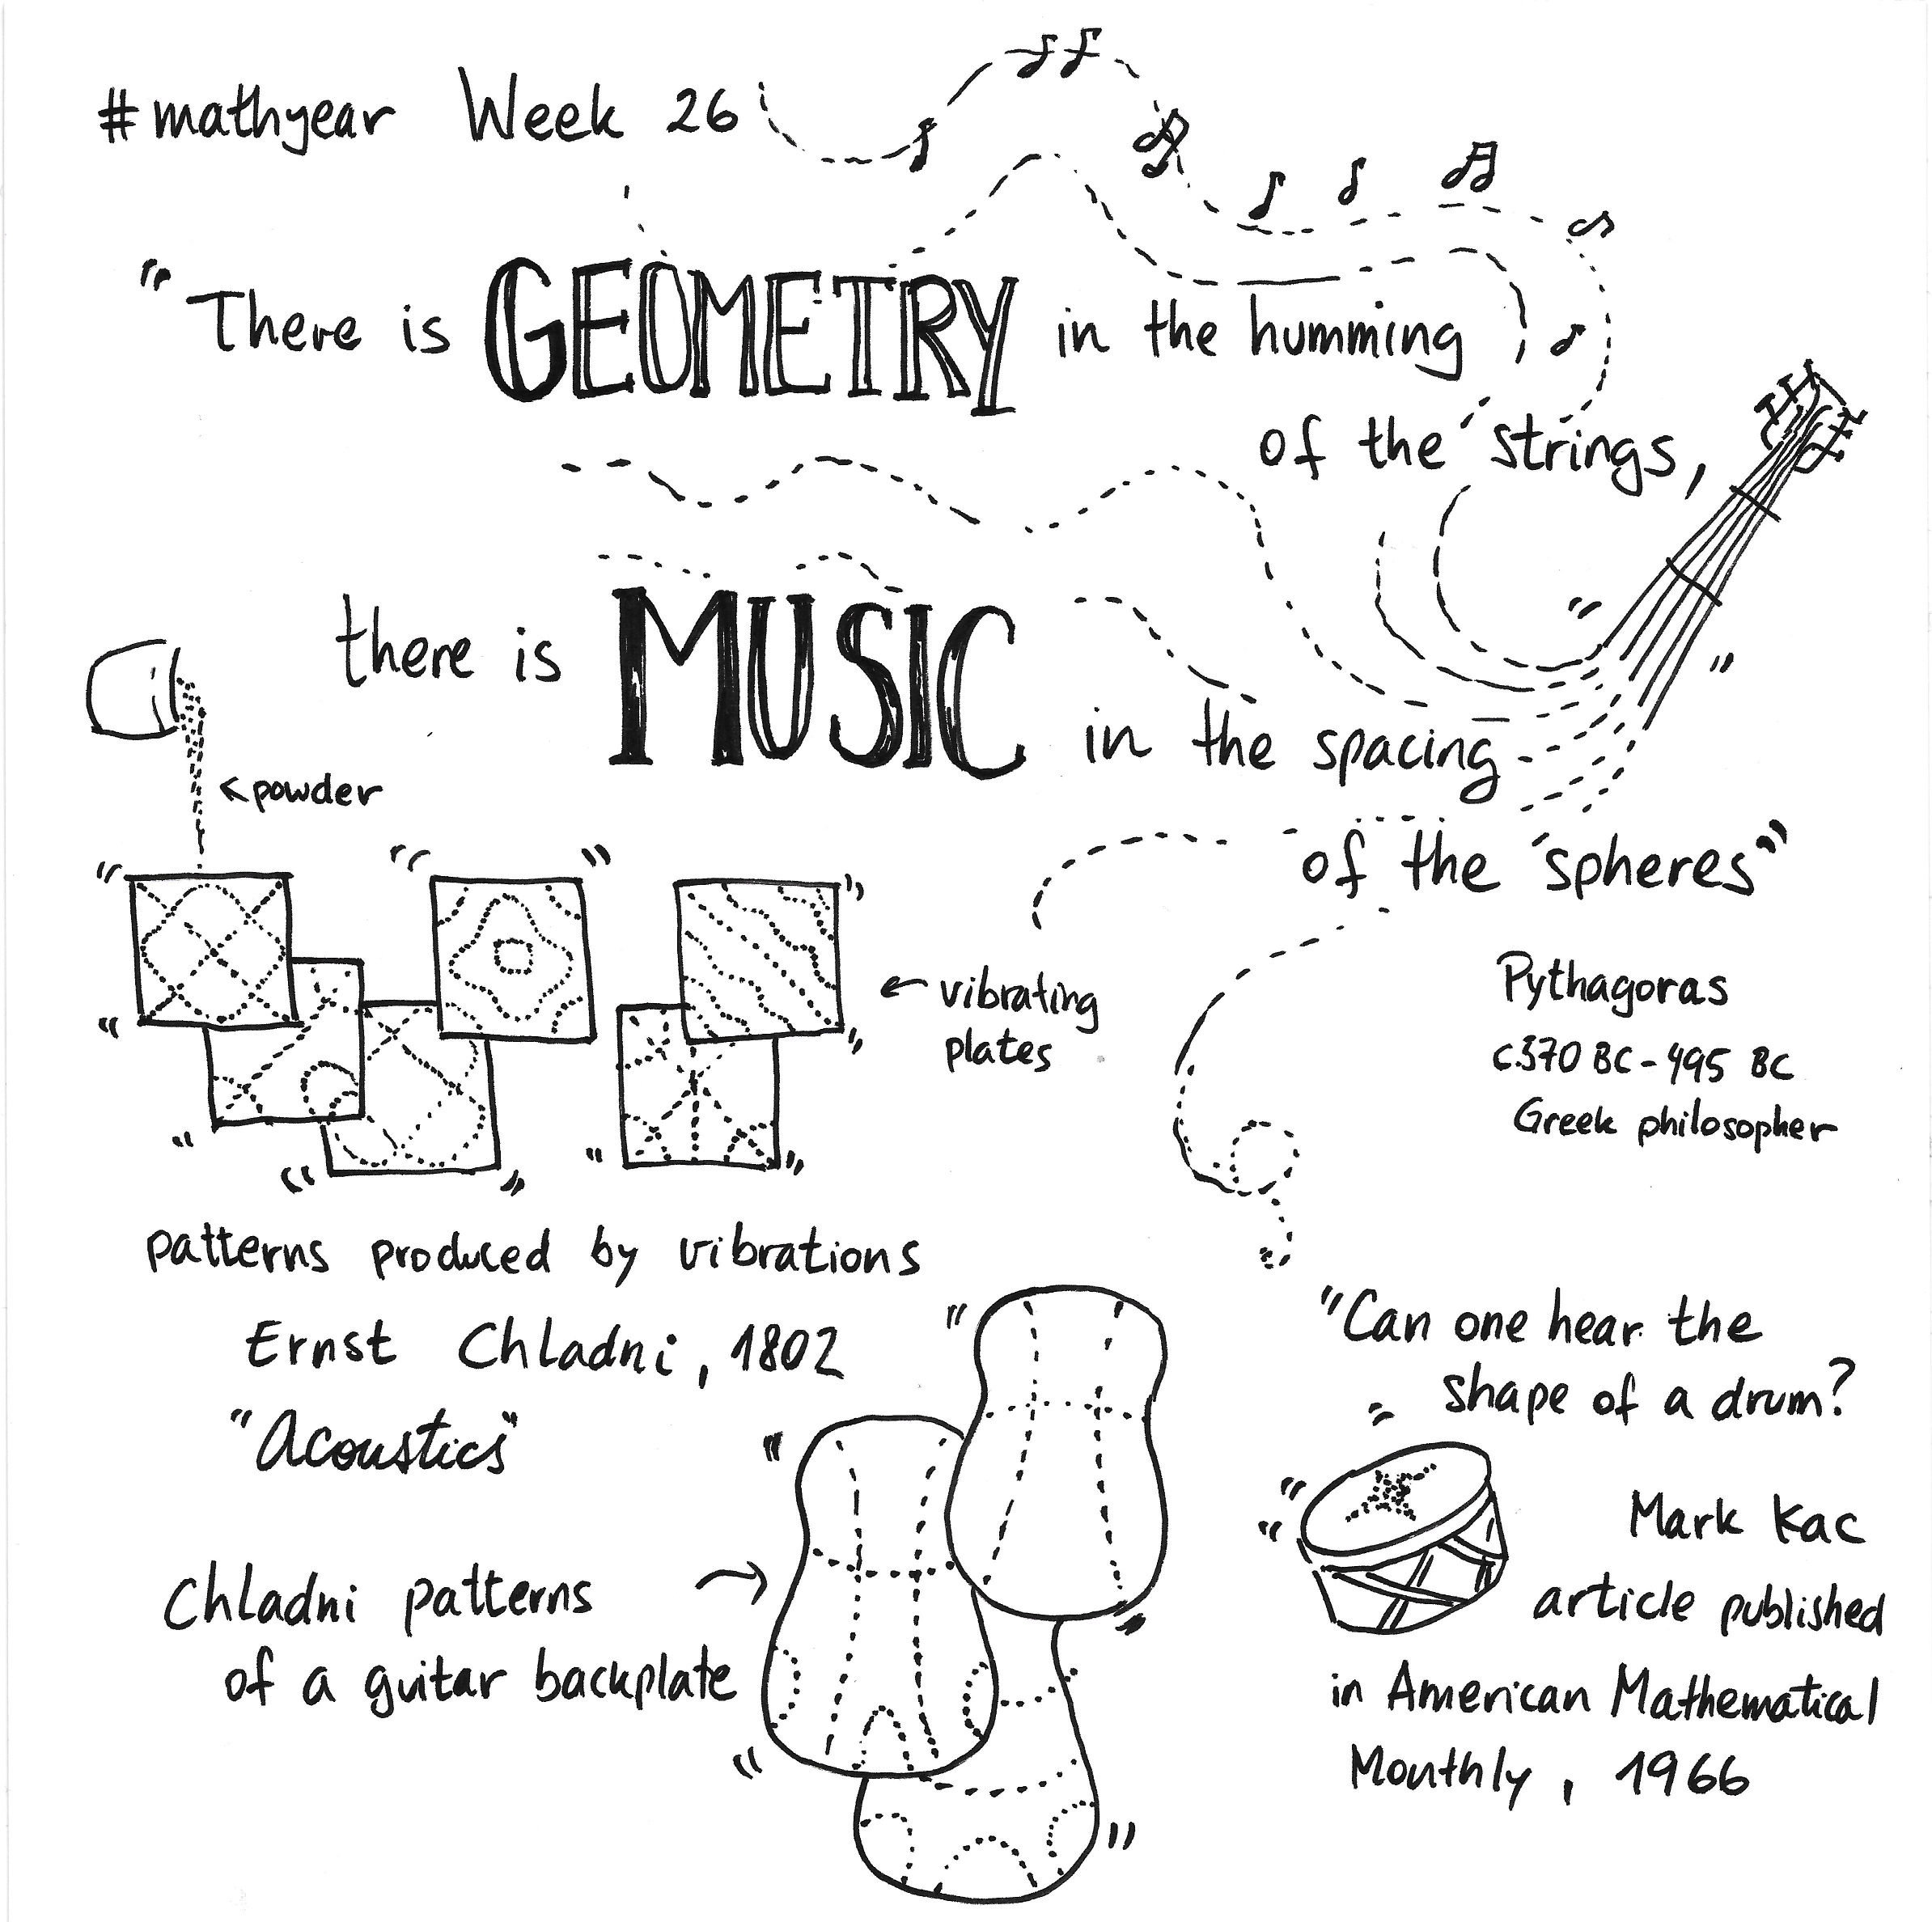 #mathyear Week 26
"There is GEOMETRY in the humming
of the strings,
there is MUSIC in the spacing
of the spheres"
Pythagoras
c.370 BC - 495 BC
Greek philosopher
< powder
← vibrating
plates
patterns produced by vibrations
Ernst Chladni, 1802
"Acoustics"
Chladni patterns
of a guitar backplate
"Can one hear the
shape of a drum?
Mark Kac
article published
in American Mathematical
Monthly, 1966